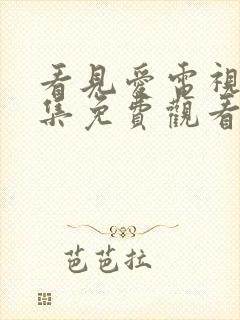 看見愛電視
集免費觀看
芭芭拉